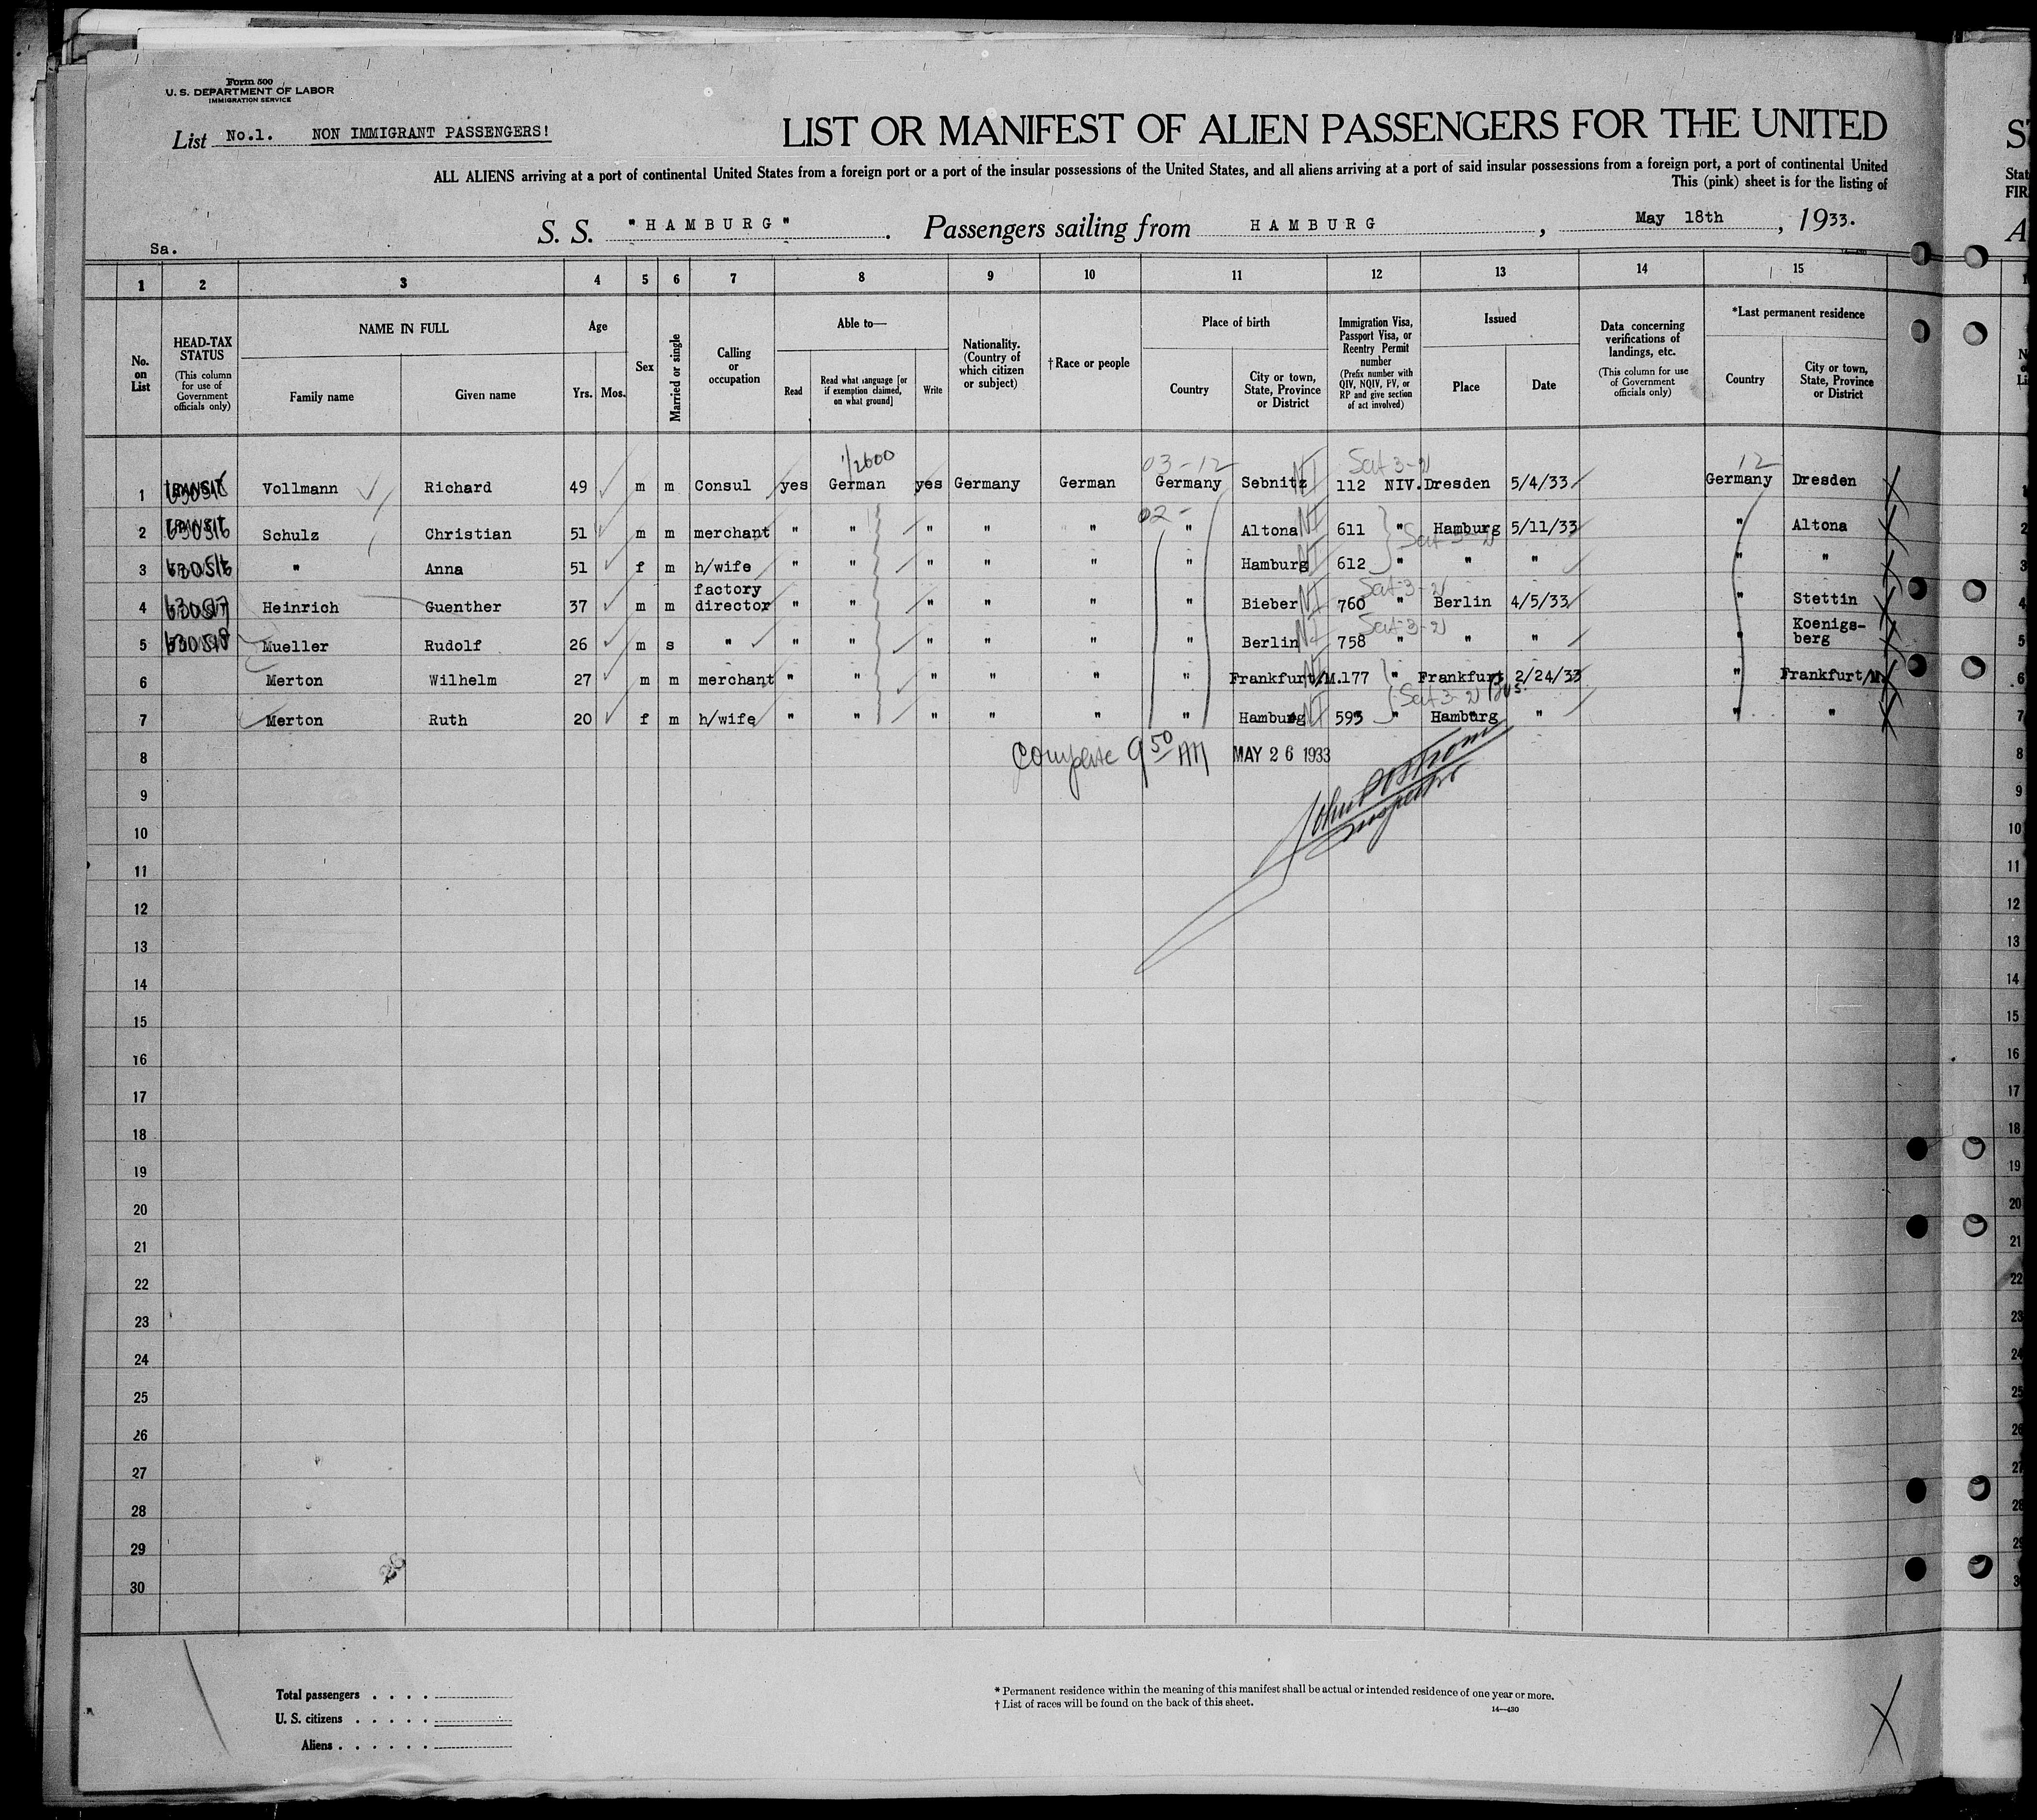 Form 500
U. S. DEPARTMENT OF LABOR
IMMIGRATION SERVICE
List No.1. NON IMMIGRANT PASSENGERS!
LIST OR MANIFEST OF ALIEN PASSENGERS FOR THE UNITED
ALL ALIENS arriving at a port of continental United States from a foreign port or a port of the insular possessions of the United States, and all aliens arriving at a port of said insular possessions from a foreign port, a port of continental United
This (pink) sheet is for the listing of
Sa.
S. S. "HAMBURG". Passengers sailing from HAMBURG, May 18th, 1933.
1 2 3 4 5 6 7 8 9 10 11 12 13 14 15
No. on List
HEAD-TAX STATUS (This column for use of Government officials only)
NAME IN FULL
Family name
Given name
Age
Yrs. Mos.
Sex
Married or single
Calling or occupation
Able to—
Read
Read what language [or if exemption claimed, on what ground]
Write
Nationality. (Country of which citizen or subject)
† Race or people
Place of birth
Country
City or town, State, Province or District
Immigration Visa, Passport Visa, or Reentry Permit number (Prefix number with QIV, NQIV, PV, or RP and give section of act involved)
Issued
Place
Date
Data concerning verifications of landings, etc. (This column for use of Government officials only)
*Last permanent residence
Country
City or town, State, Province or District
1/2600 03-12 12
1 TRANSIT Vollmann Richard 49 m m Consul yes German yes Germany German Germany Sebnitz 112 NIV. Dresden 5/4/33 Germany Dresden
02-
2 TRANSIT Schulz Christian 51 m m merchant " " " " " " Altona 611 " Hamburg 5/11/33 " Altona
3 " Anna 51 f m h/wife " " " " " " Hamburg 612 " " " " "
4 Heinrich Guenther 37 m m factory director " " " " " " Bieber 760 " Berlin 4/5/33 " Stettin
5 Mueller Rudolf 26 m s " " " " " " " Berlin 758 " " " " Koenigs-berg
6 Merton Wilhelm 27 m m merchant " " " " " " Frankfurt/M. 177 " Frankfurt 2/24/33 " Frankfurt/M.
7 Merton Ruth 20 f m h/wife " " " " " " Hamburg 595 " Hamburg " " "
8 Complete 9 50 AM MAY 26 1933
9
10 Inspector
11
12
13
14
15
16
17
18
19
20
21
22
23
24
25
26
27
28
29
30
Total passengers
U. S. citizens
Aliens
* Permanent residence within the meaning of this manifest shall be actual or intended residence of one year or more.
† List of races will be found on the back of this sheet.
14—430